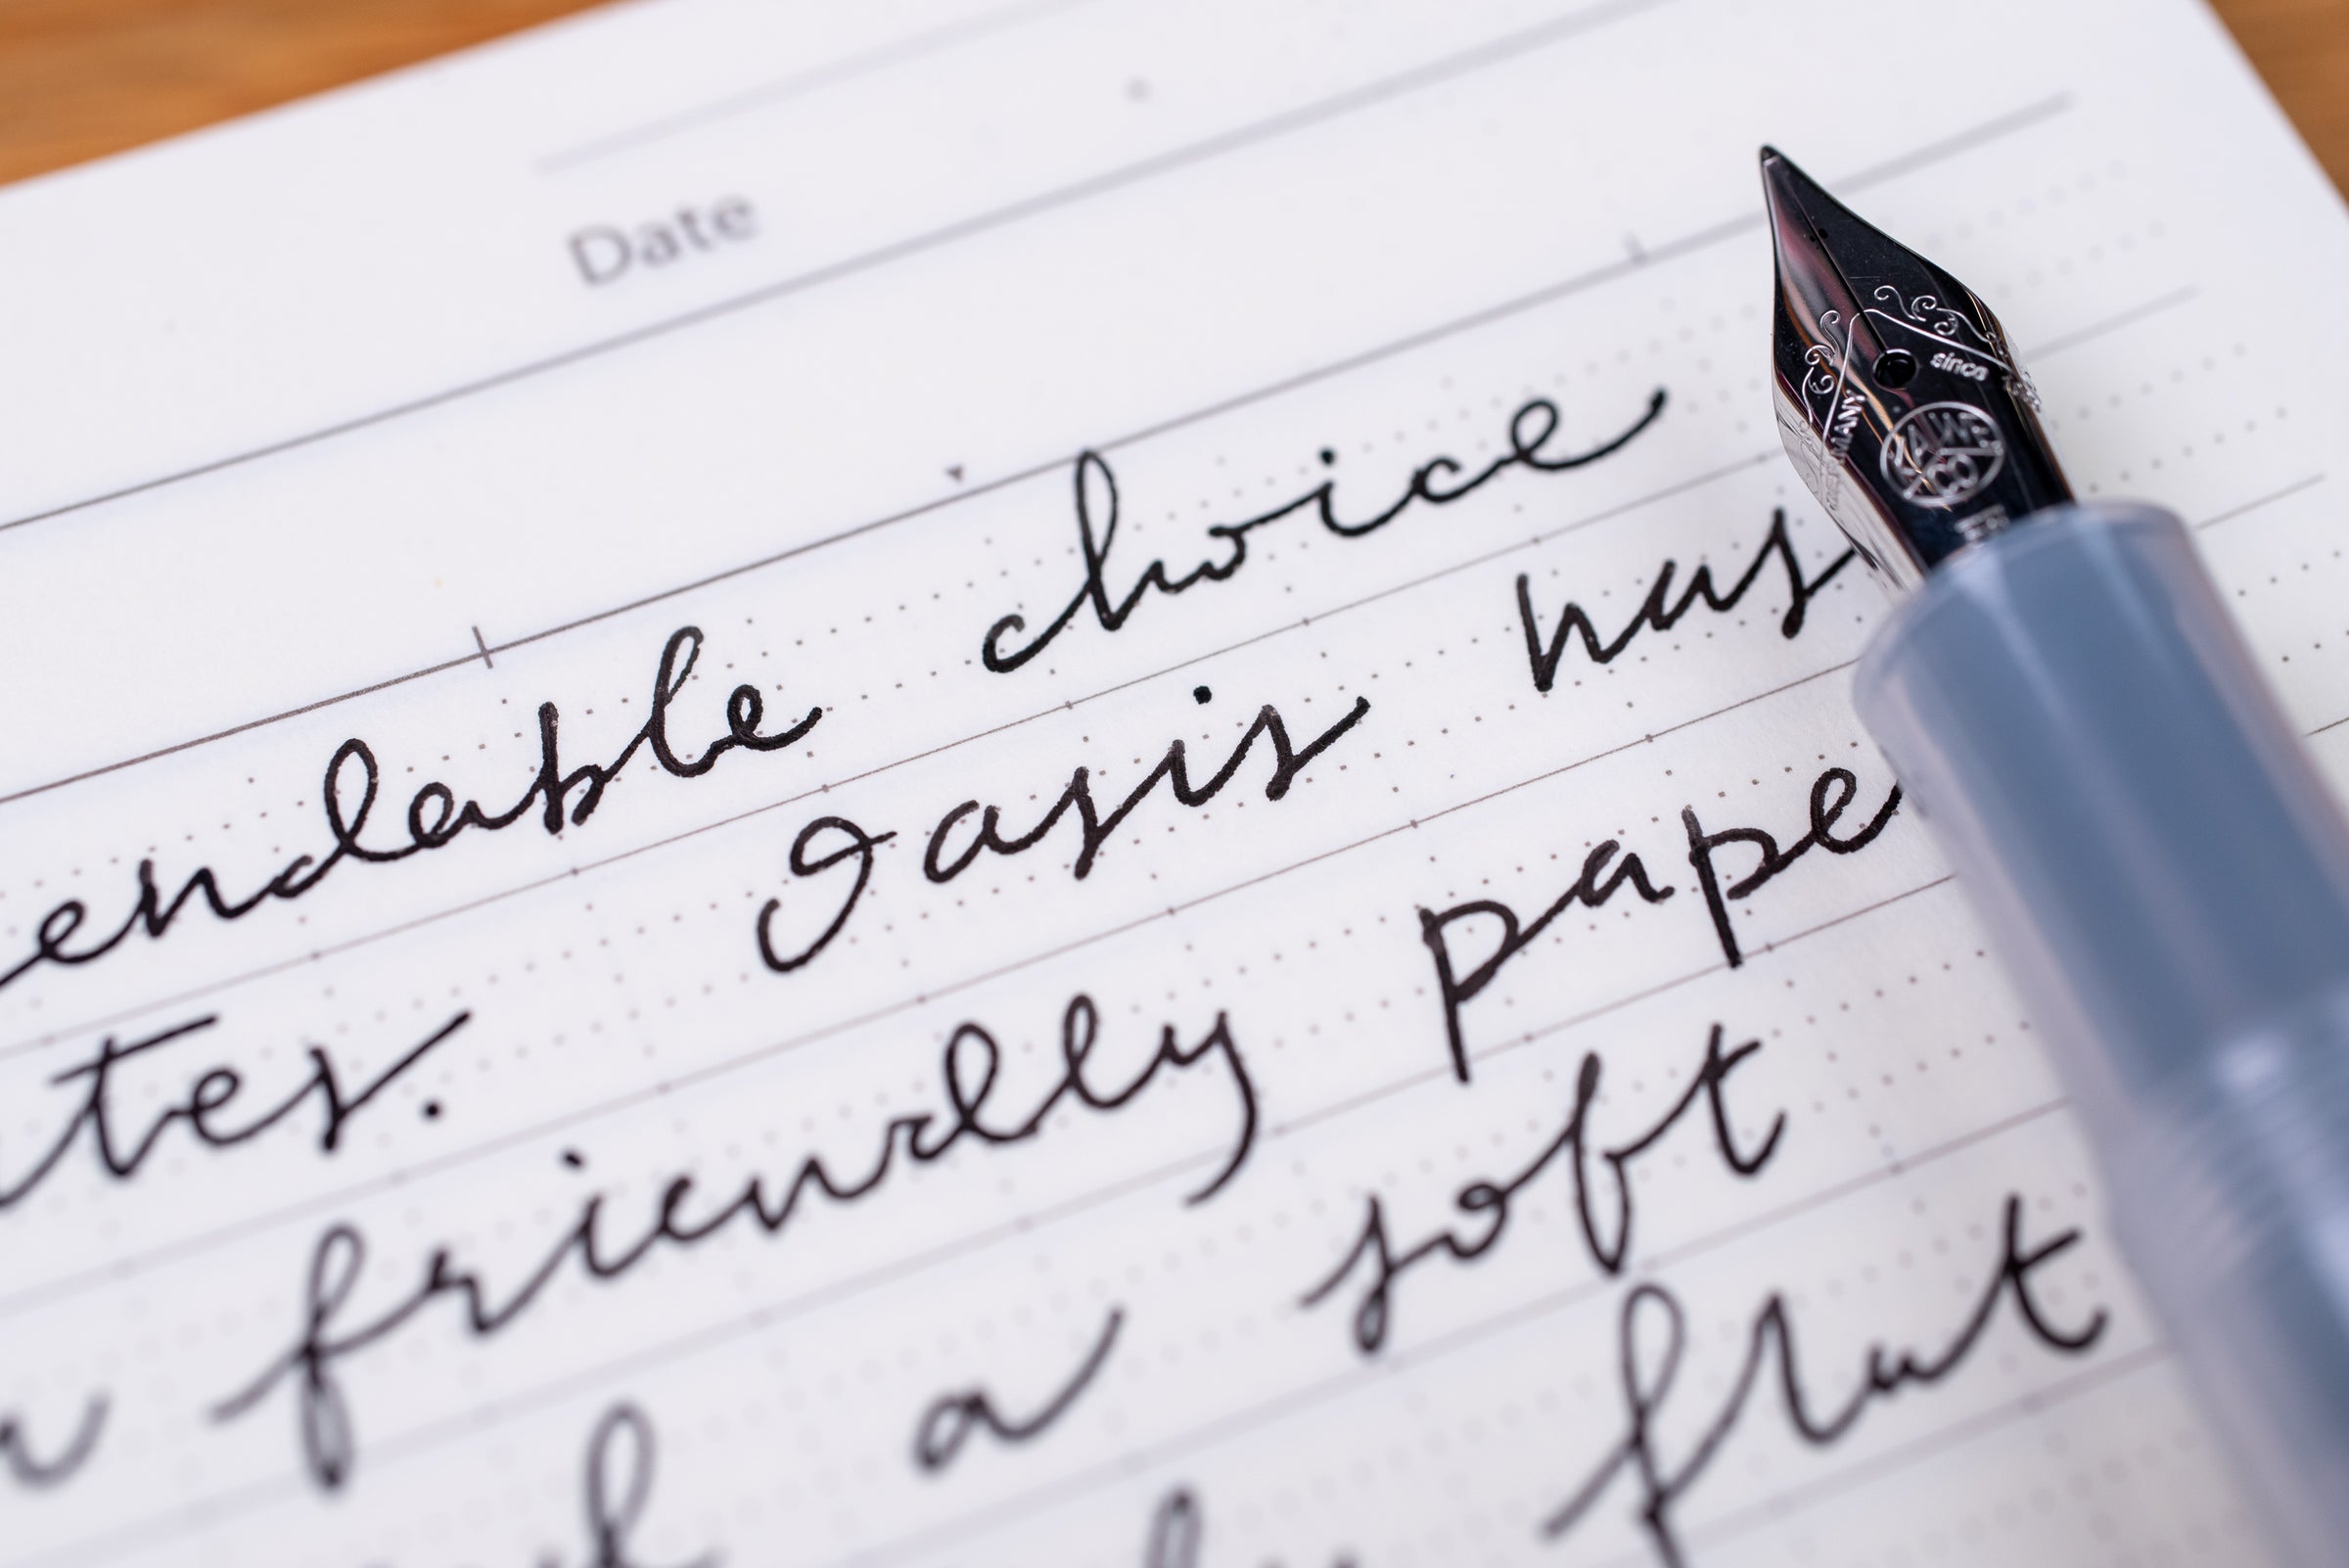 Date
endable choice
tes. Oasis has
friendly pape
a soft
flat
since
GERMANY
KAWECO